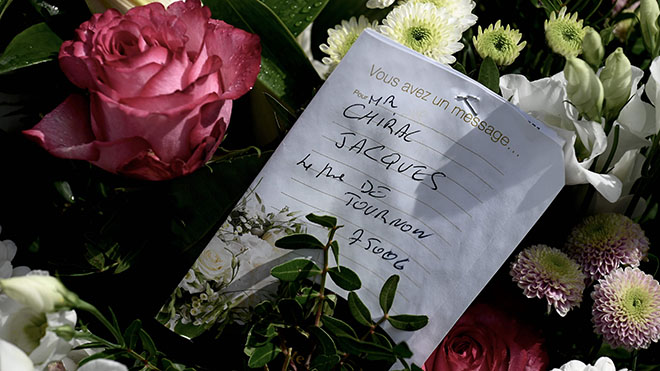 Vous avez un message...
Pour MR
CHIRAC
JACQUES
4 RUE DE
TOURNON
75006